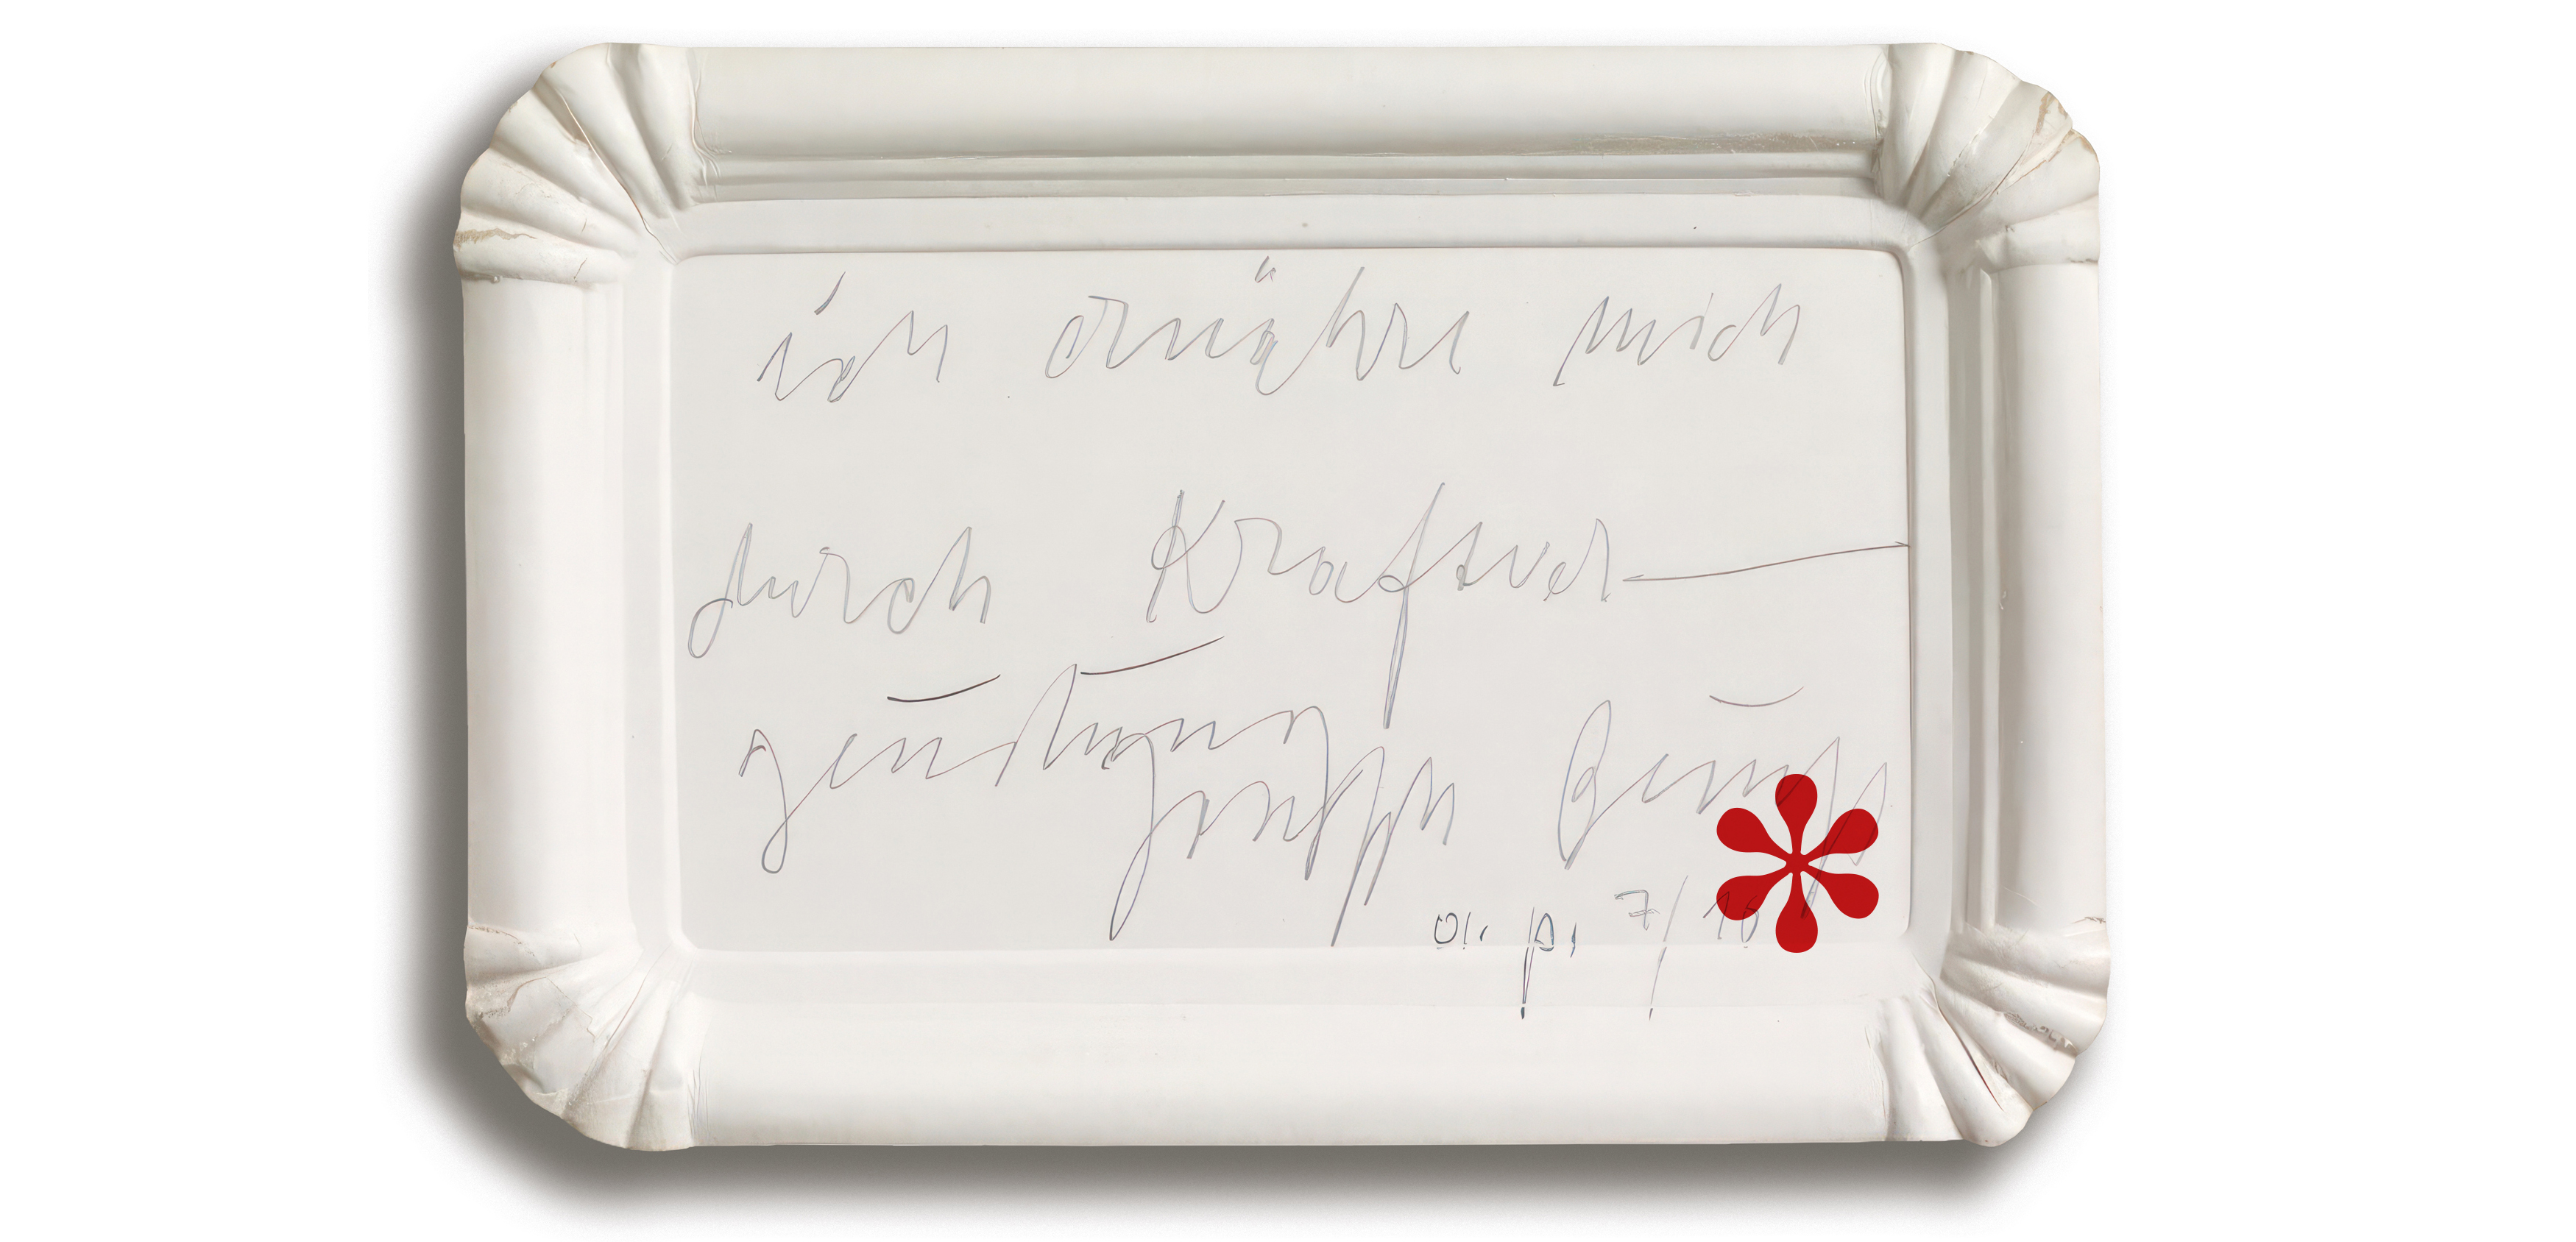 ich ernähre mich
durch Kraftver—
geudung
Joseph Beuys
a. p. 7/10